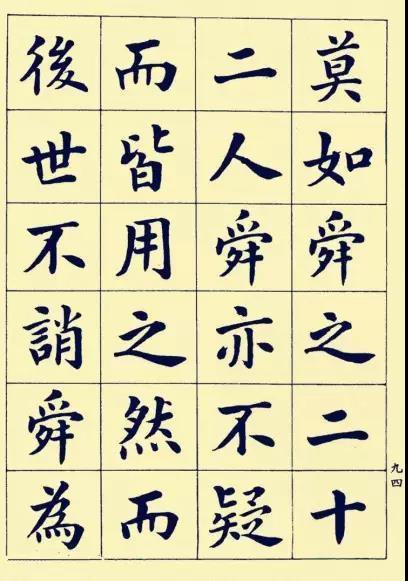 莫如舜之二十
二人舜亦不疑
而皆用之然而
後世不誚舜為
九四